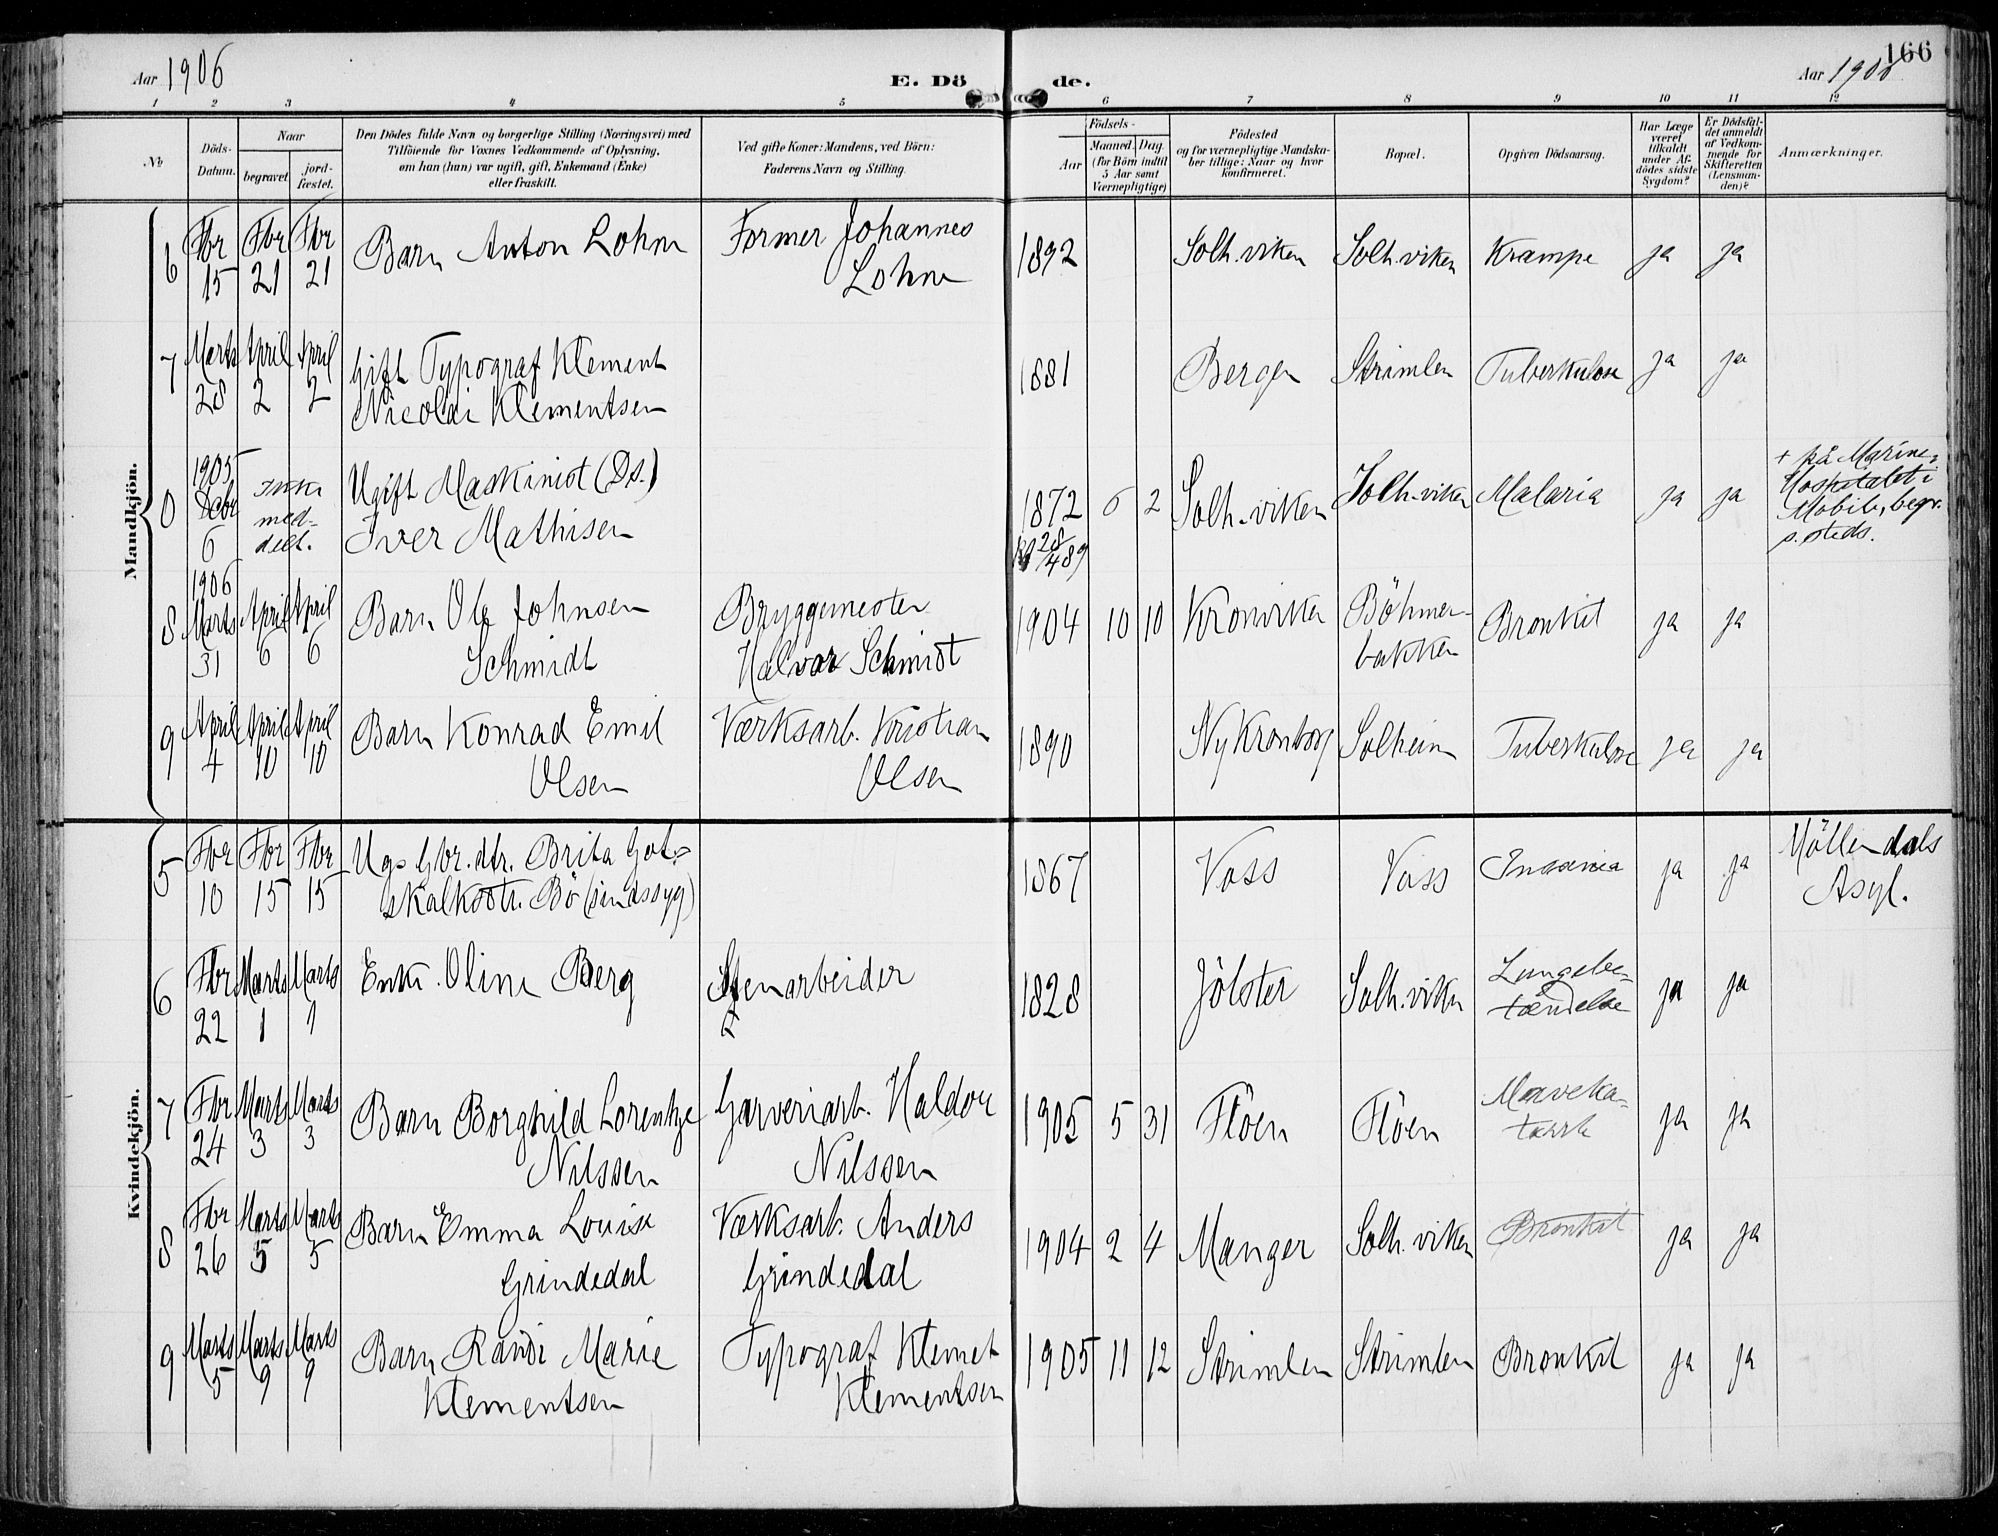 Aar 1906 E. Döde. Aar 1906 166
1 2 3 4 5 6 7 8 9 10 11 12
No
Döds-Datum.
Naar
begravet.
jord-fæstet.
Den Dödes fulde Navn og borgerlige Stilling (Næringsvei) med
Tilföiende for Voxnes Vedkommende af Oplysning,
om han (hun) var ugift, gift, Enkemand (Enke)
eller fraskilt.
Ved gifte Koner: Mandens, ved Börn:
Faderens Navn og Stilling.
Födsels-
Aar
Maaned. Dag.
(for Börn indtil
5 Aar samt
Værnepligtige)
Födested
og for værnepligtige Mandska-
ber tillige: Naar og hvor
konfirmeret.
Bopæl.
Opgiven Dödsaarsag.
Har Læge
været
tilkaldt
under Af-
dödes sidste
Sygdom?
Er Dödsfal-
det anmeldt
af Vedkom-
mende for
Skifteretten
(Lensman-
den)?
Anmærkninger.
Mandkjön.
6 Fbr Fbr Fbr Barn Anton Lohne Former Johannes 1892 Solh.viken Solh.viken Krampe ja ja
15 21 21 Lohne
7 Marts April April Gift Typograf Klement 1881 Bergen Strimlen Tuberkulose ja ja
28 2 2 Nicolai Klementsen
1905
0 Debr 6 Ikke med-delt. Ugift Maskinist (Ds.) 1872 6 2 Solh.viken Solh.viken Malaria ja ja
Iver Mathisen
28/4 89
+ på Marine-
Hospitalet i
Mobile, begr.
s. steds.
1906
8 Marts April April Barn Ole Johnsen Bryggemester 1904 10 10 Kronviken Böhmer- Bronkit ja ja
31 6 6 Schmidt Halvar Schmidt bakken
9 April April April Barn Konrad Emil Værksarb. Kristian 1890 Ny Kronborg Solheim Tuberkulose ja ja
4 10 10 Olsen Olsen
Kvindekjön.
5 Fbr Fbr Fbr Ug. Gbr.dtr. Brita Got- 1867 Voss Voss Insania ja ja Möllendals
10 15 15 skalksdtr. Bö (sindssyg) Asyl.
6 Fbr Marts Marts Enke. Oline Berg Stenarbeider 1828 Jölster Solh.viken Lungebe- ja ja
22 1 1 tændelse
7 Fbr Marts Marts Barn Borghild Lorentze Garveriarb. Haldor 1905 5 31 Flöen Flöen Maveka- ja ja
24 3 3 Nilssen Nilssen tarrh
8 Fbr Marts Marts Barn Emma Louise Værksarb. Anders 1904 2 4 Manger Solh.viken Bronkit ja ja
26 5 5 Grindedal Grindedal
9 Marts Marts Marts Barn Randi Marie Typograf Klemet 1905 11 12 Strimlen Strimlen Bronkit ja ja
5 9 9 Klementsen Klementsen